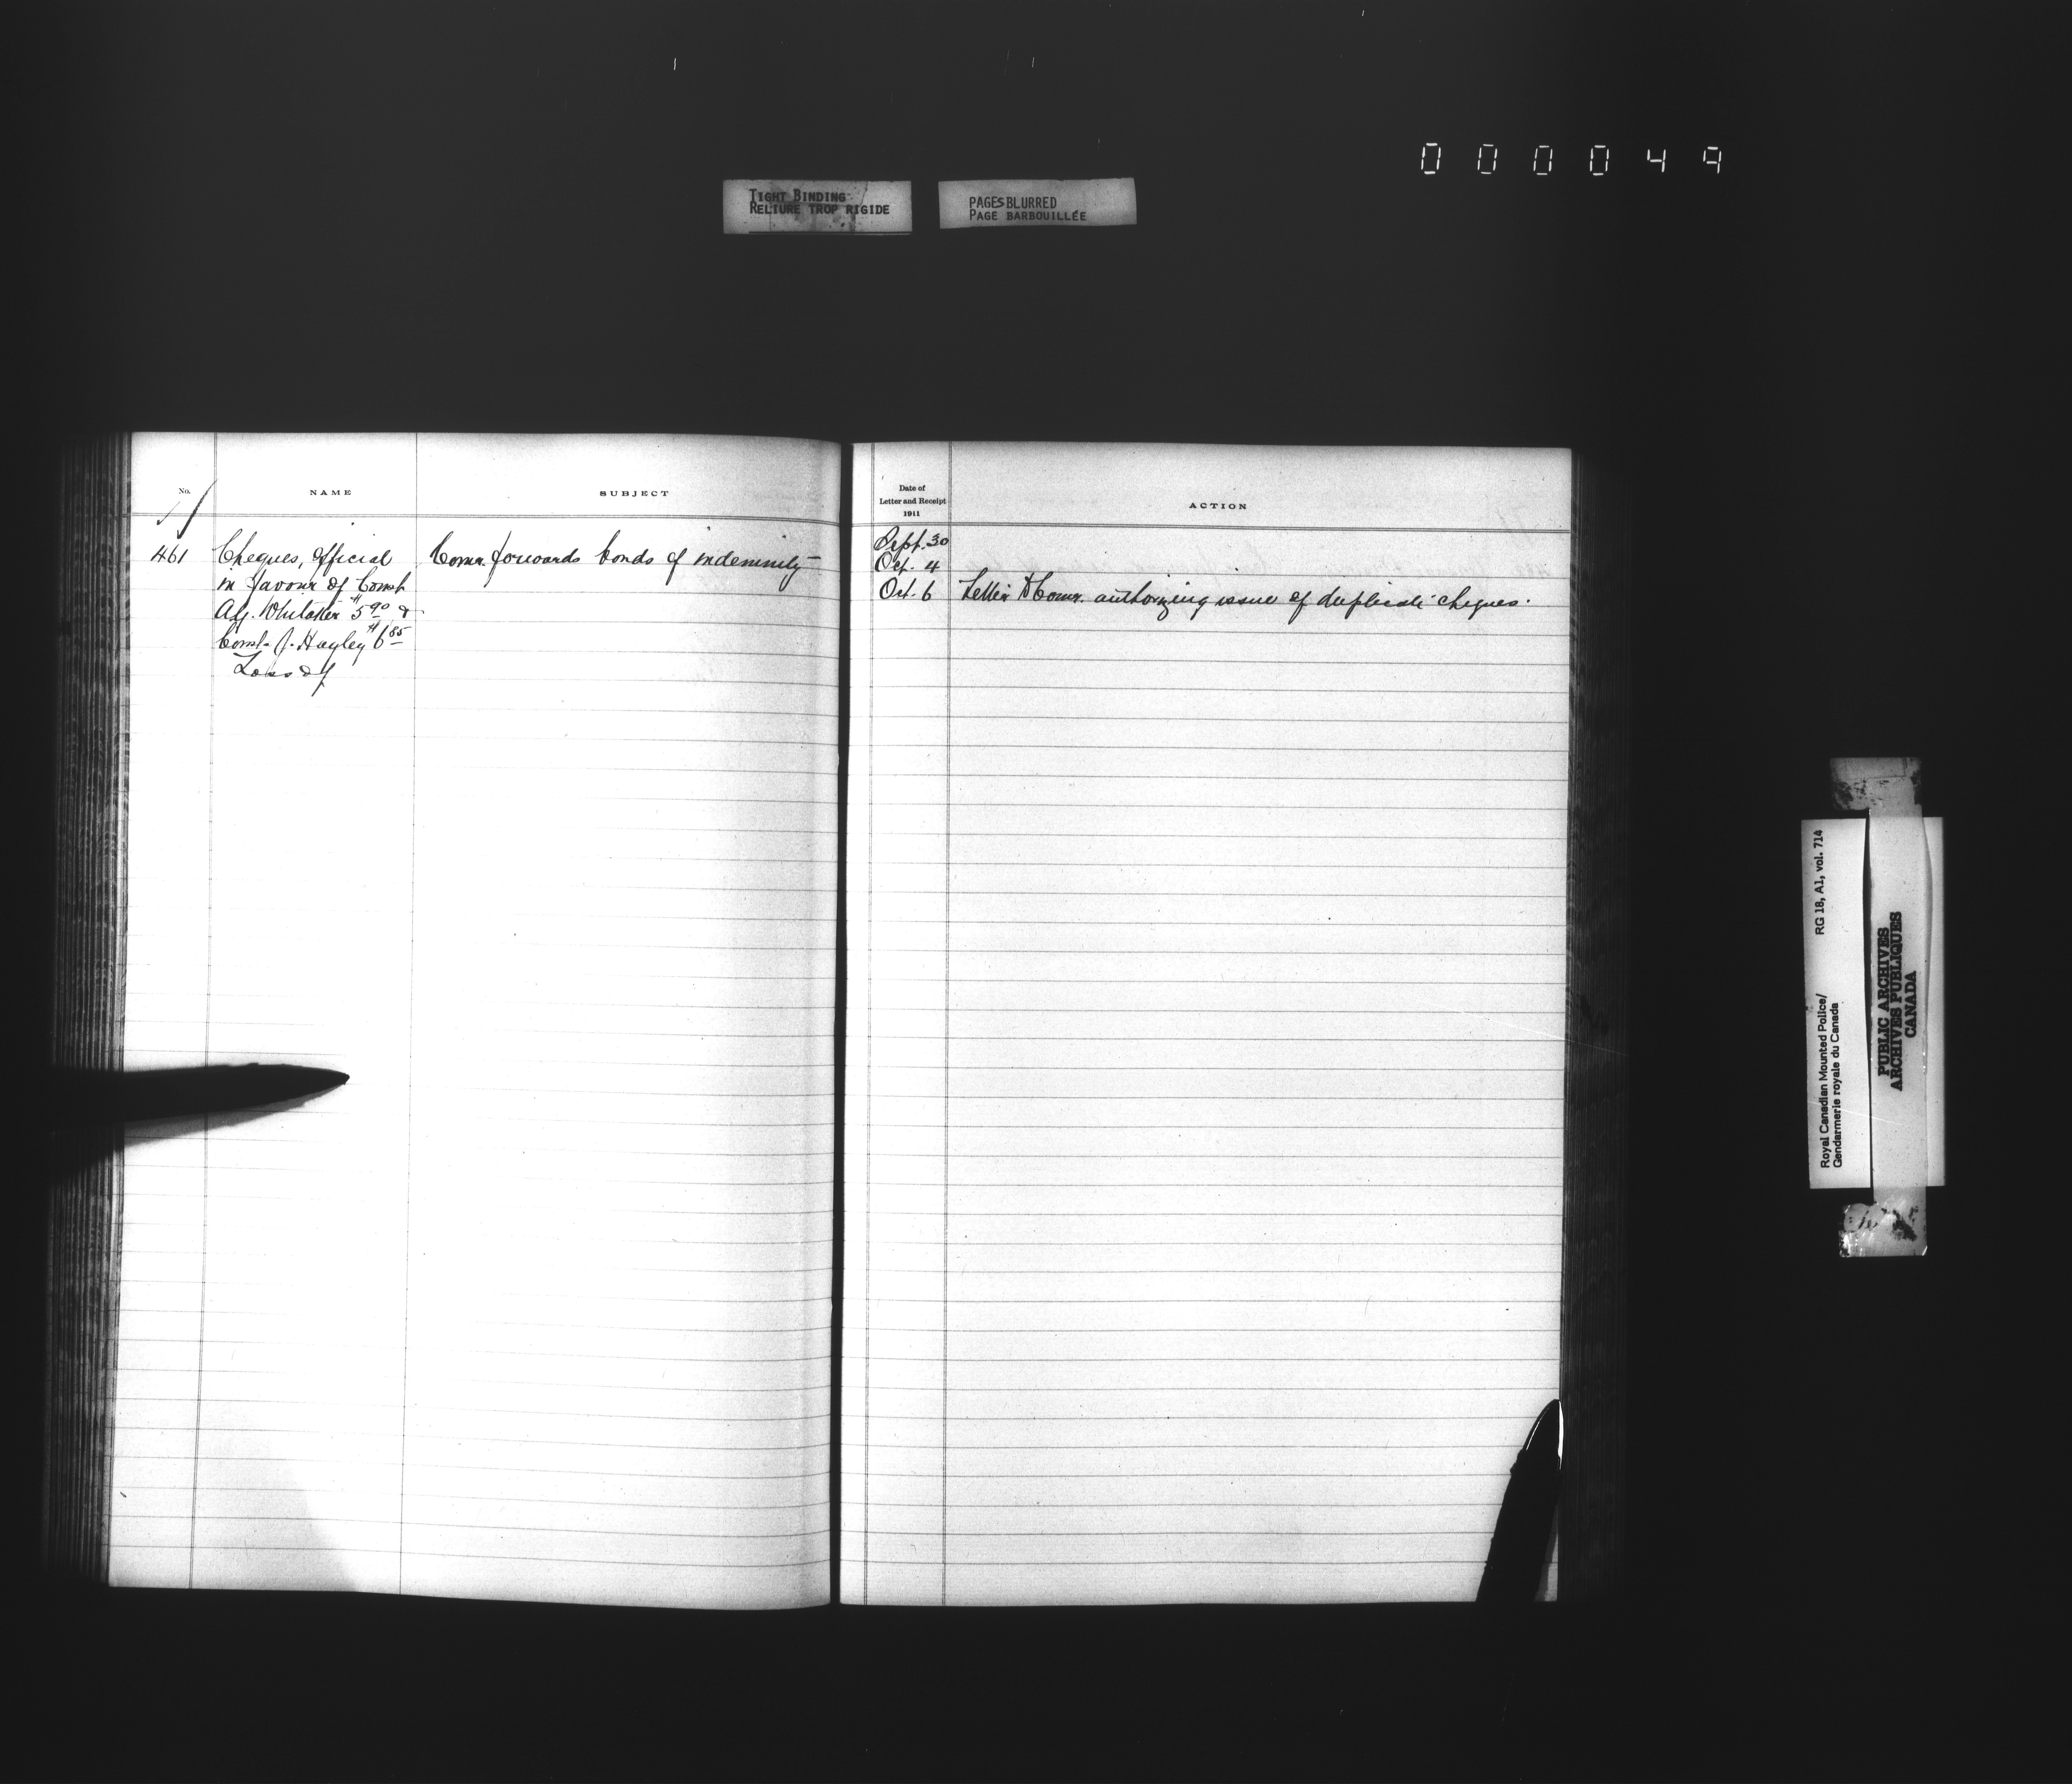 000049
TIGHT BINDING
RELIURE TROP RIGIDE
PAGES BLURRED
PAGE BARBOUILLÉE
No.
NAME
SUBJECT
461
Cheques, official
in favour of Const.
A.J. Whitaker $5.90 &
Const. J. Hayley $6.85
Loss of
Comr. forwards bonds of indemnity
Date of
Letter and Receipt
1911
ACTION
Sept. 30
Oct. 4
Oct. 6
Letter to Comr. authorizing issue of duplicate cheques.
Royal Canadian Mounted Police/
Gendarmerie royale du Canada
RG 18, A1, vol. 714
PUBLIC ARCHIVES
ARCHIVES PUBLIQUES
CANADA